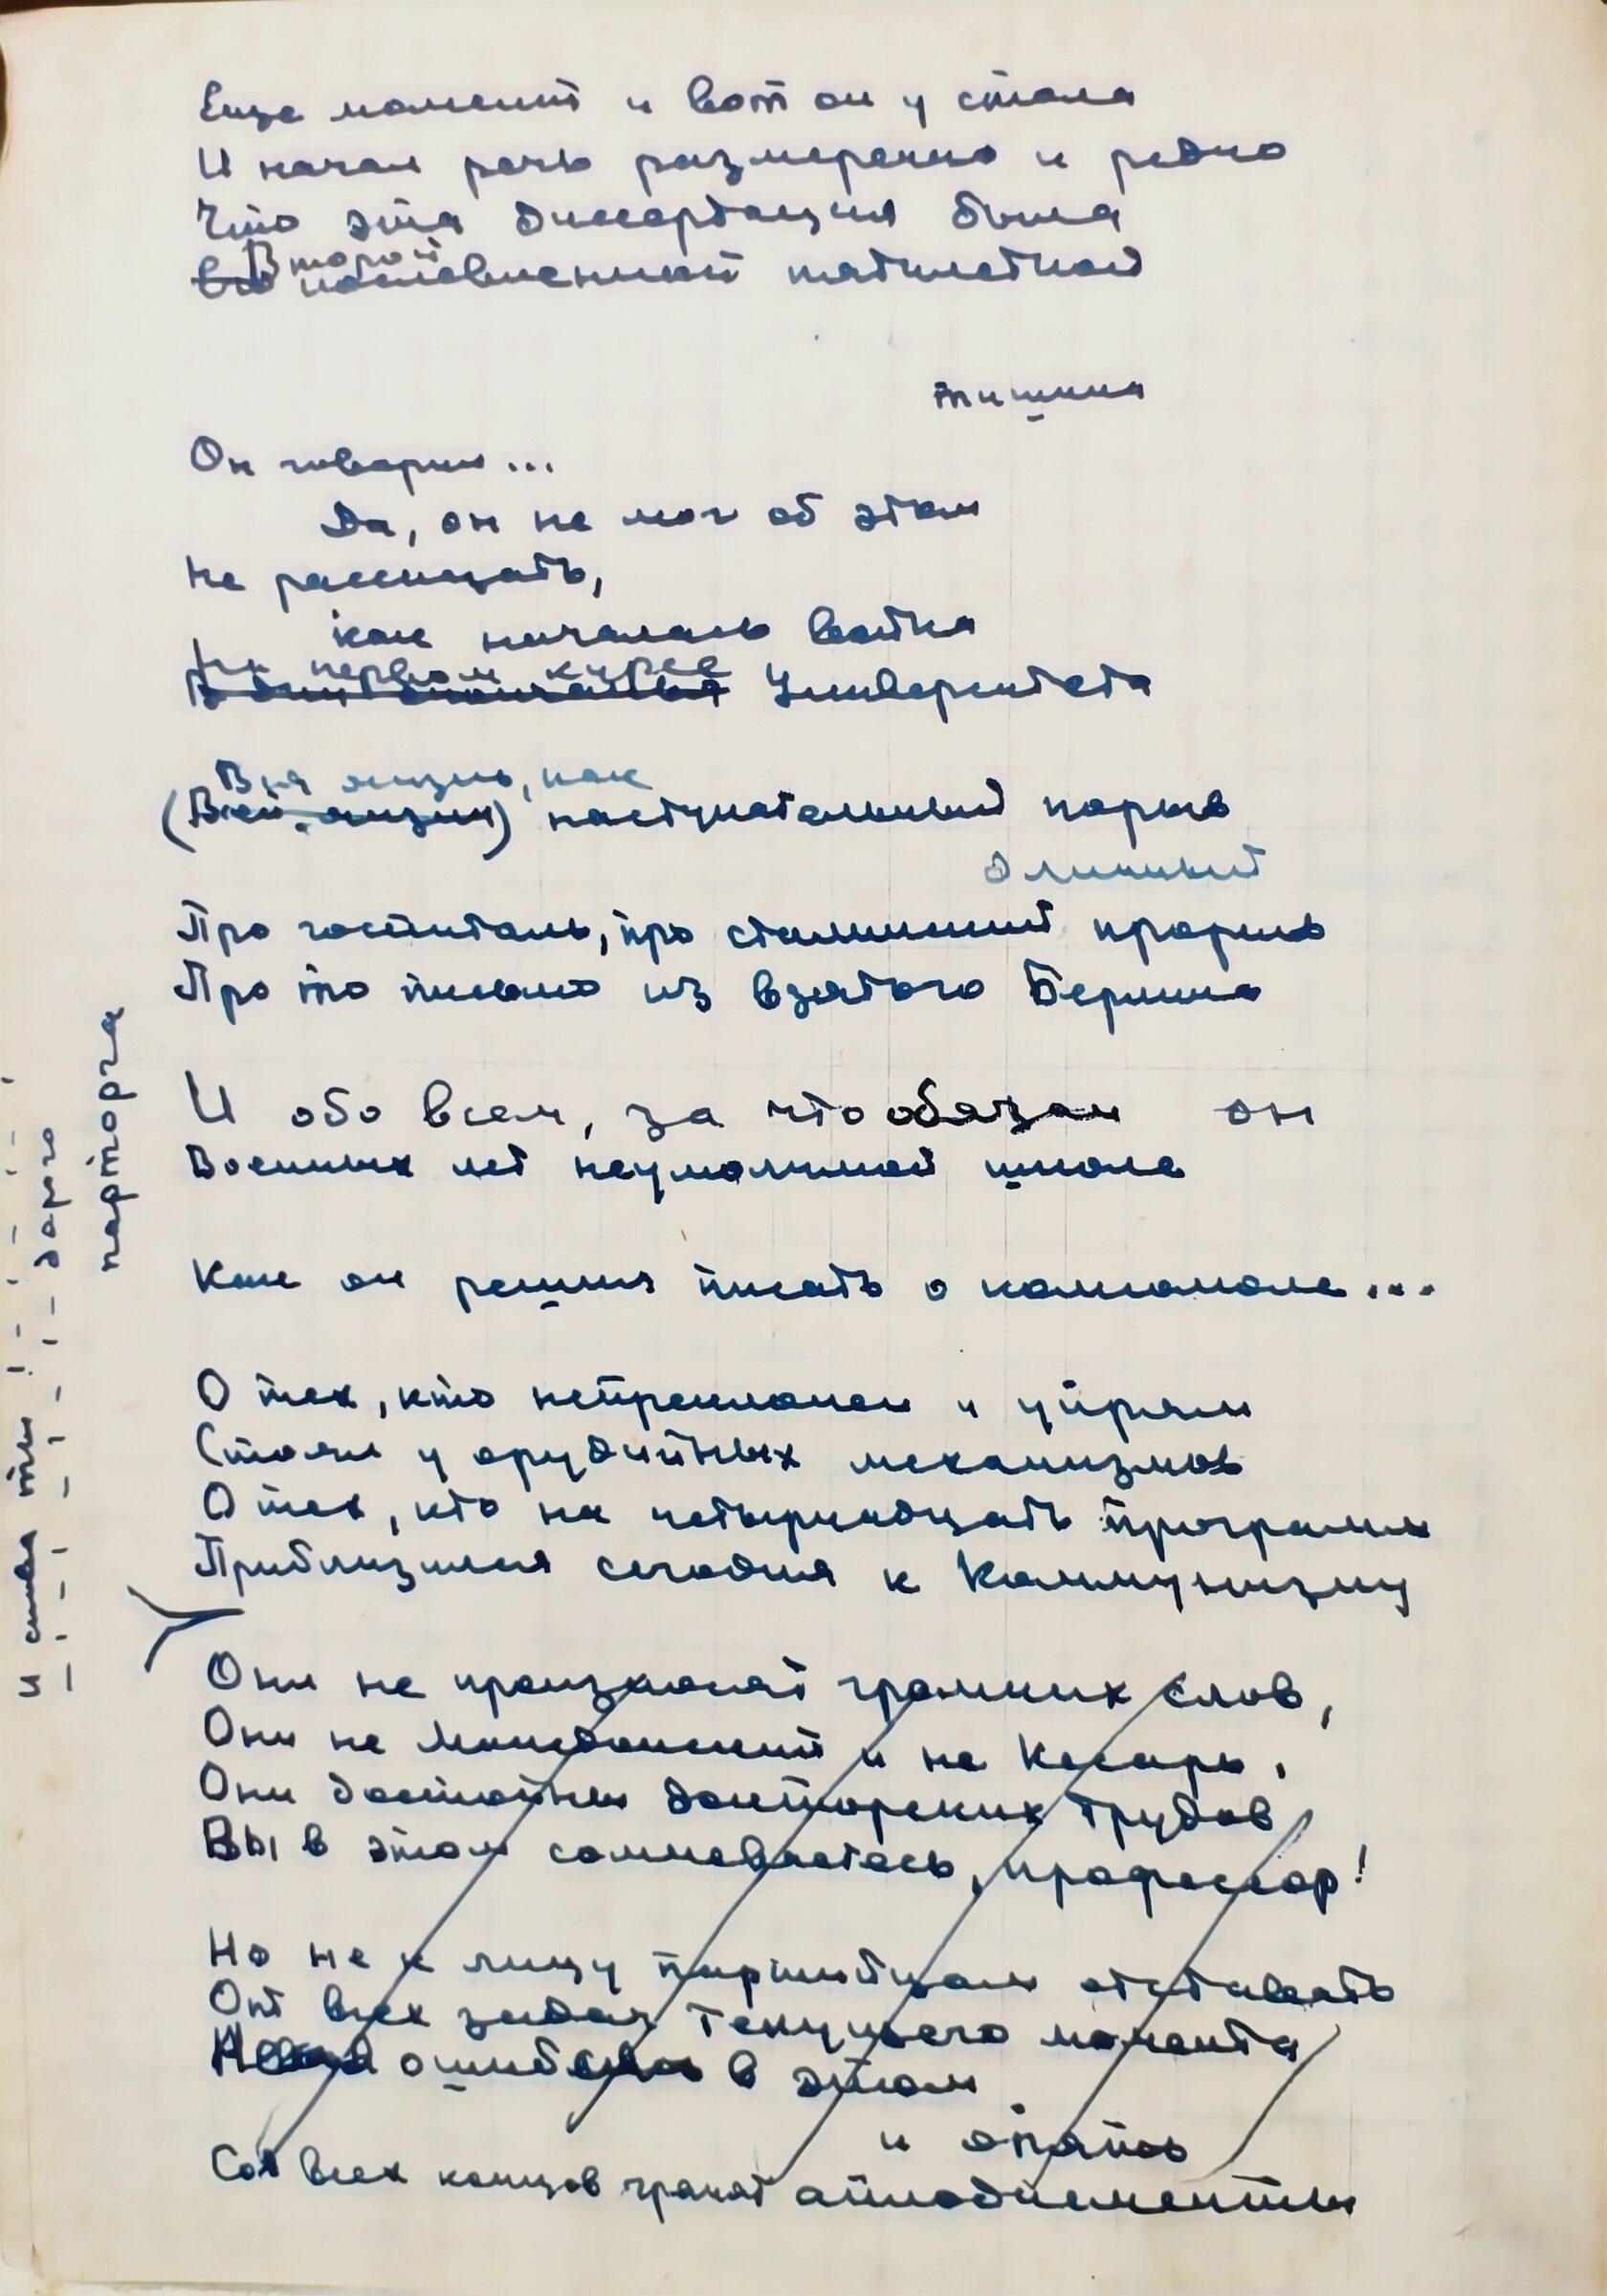 Еще момент и вот он у стола
И начал речь размеренно и редко
Что эта диссертация была
Второй
послевоенной пятилеткой
тишина
Он говорил...
Да, он не мог об этом
Не рассказать,
как началась война
На первом курсе
Университета
Вся жизнь, как
(Всей жизни) наступательный порыв
длинный
Про госпиталь, про сталинский прорыв
Про то письмо из взятого Берлина
И обо всем, за что обязан он
Военных лет неумолимой школе
Как он решил писать о комсомоле...
О тех, кто непреклонен и упрям
Стоял у орудийных механизмов
О тех, кто на четырнадцать программ
Приблизился сегодня к Коммунизму
Они не произносят громких слов,
Они не Македонский и не Кесарь,
Они достойны докторских трудов
Вы в этом сомневаетесь, профессор!
Но не к лицу партийцам отставать
От всех задач текущего момента
ошибся в этом
и опять
Со всех концов гремят аплодисменты
парторга